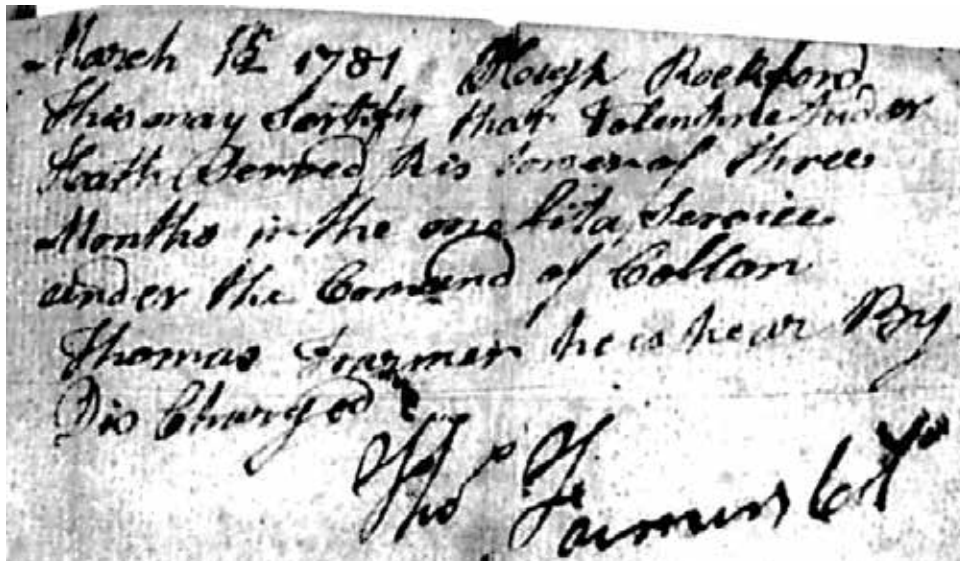 March 1st 1781 Hough Rockford
this may Sertify that Volentine Tuder
Hath Served his tower of three
Months in the melita Service
under the Comand of Collan
Thomas Frarmer he is hear By
Dis Charged
Thos Farmer Col